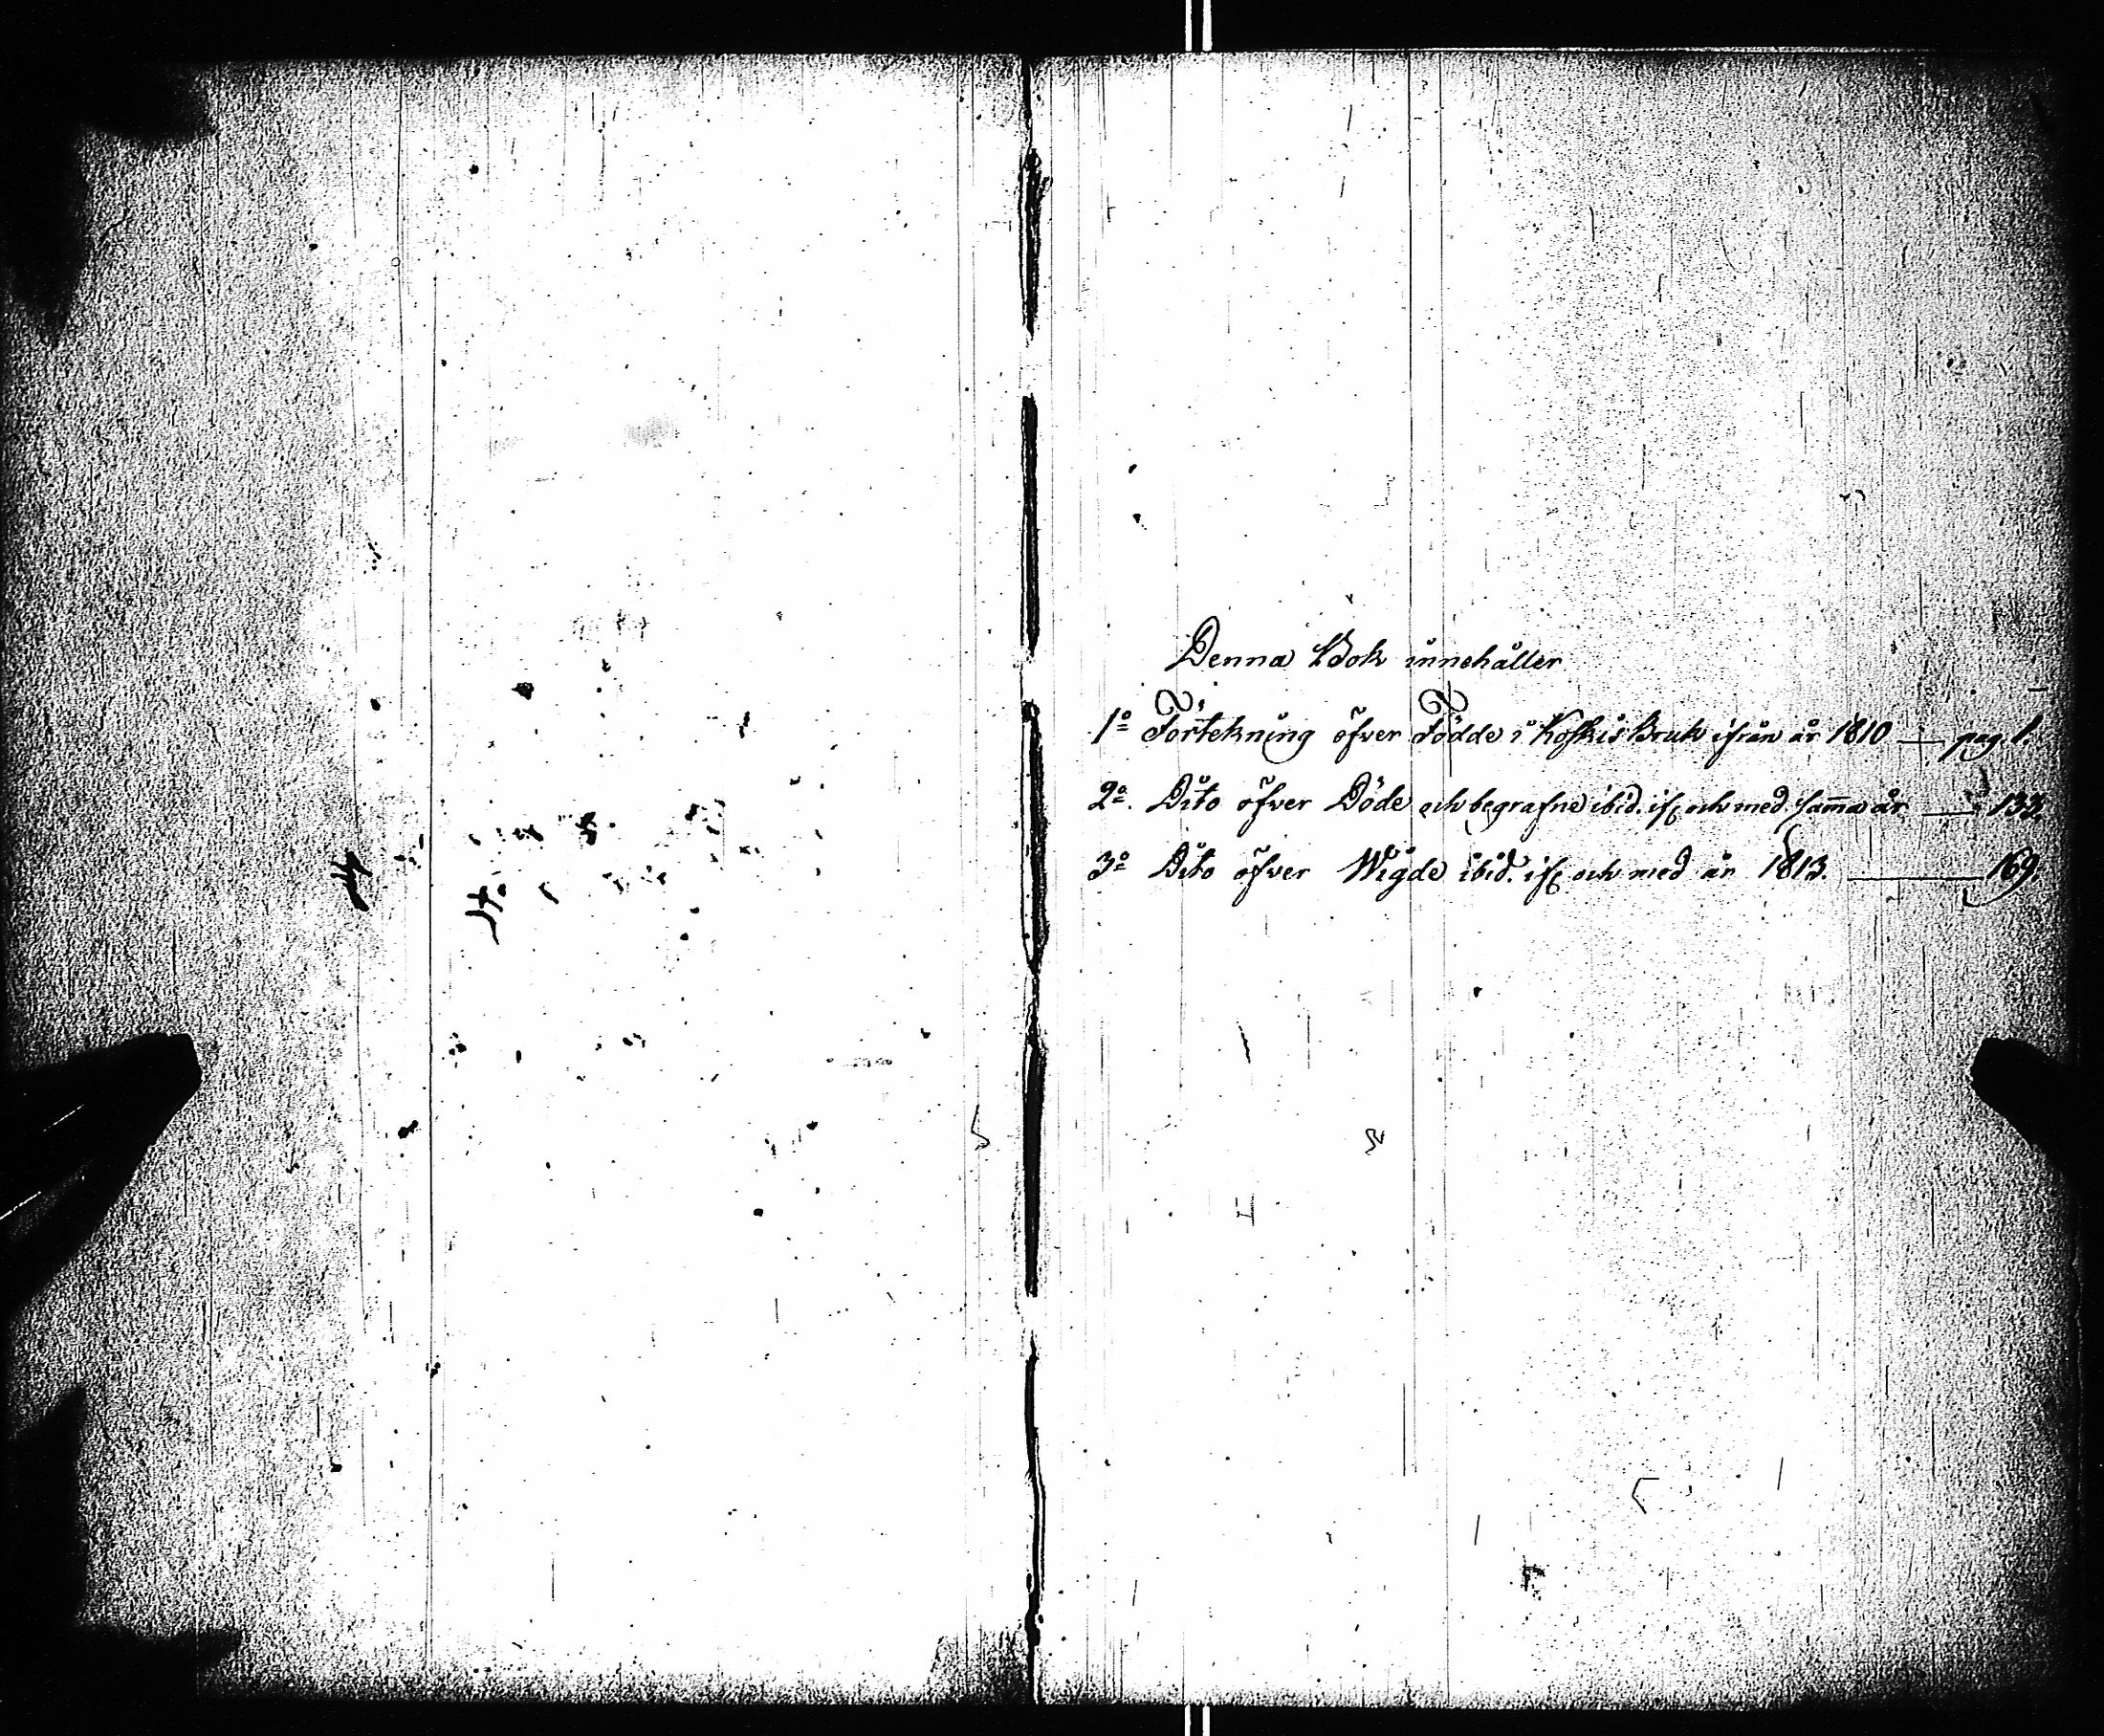 Denna Bok innehåller
1º Förtekning öfver Födde i Koskis Bruk ifrån år 1810 — pag. 1.
2º. Dito öfver Döde och begrafne ibid. ifr och med samma år — 133.
3º Dito öfver Wigde ibid. ifr och med år 1813. — 169.